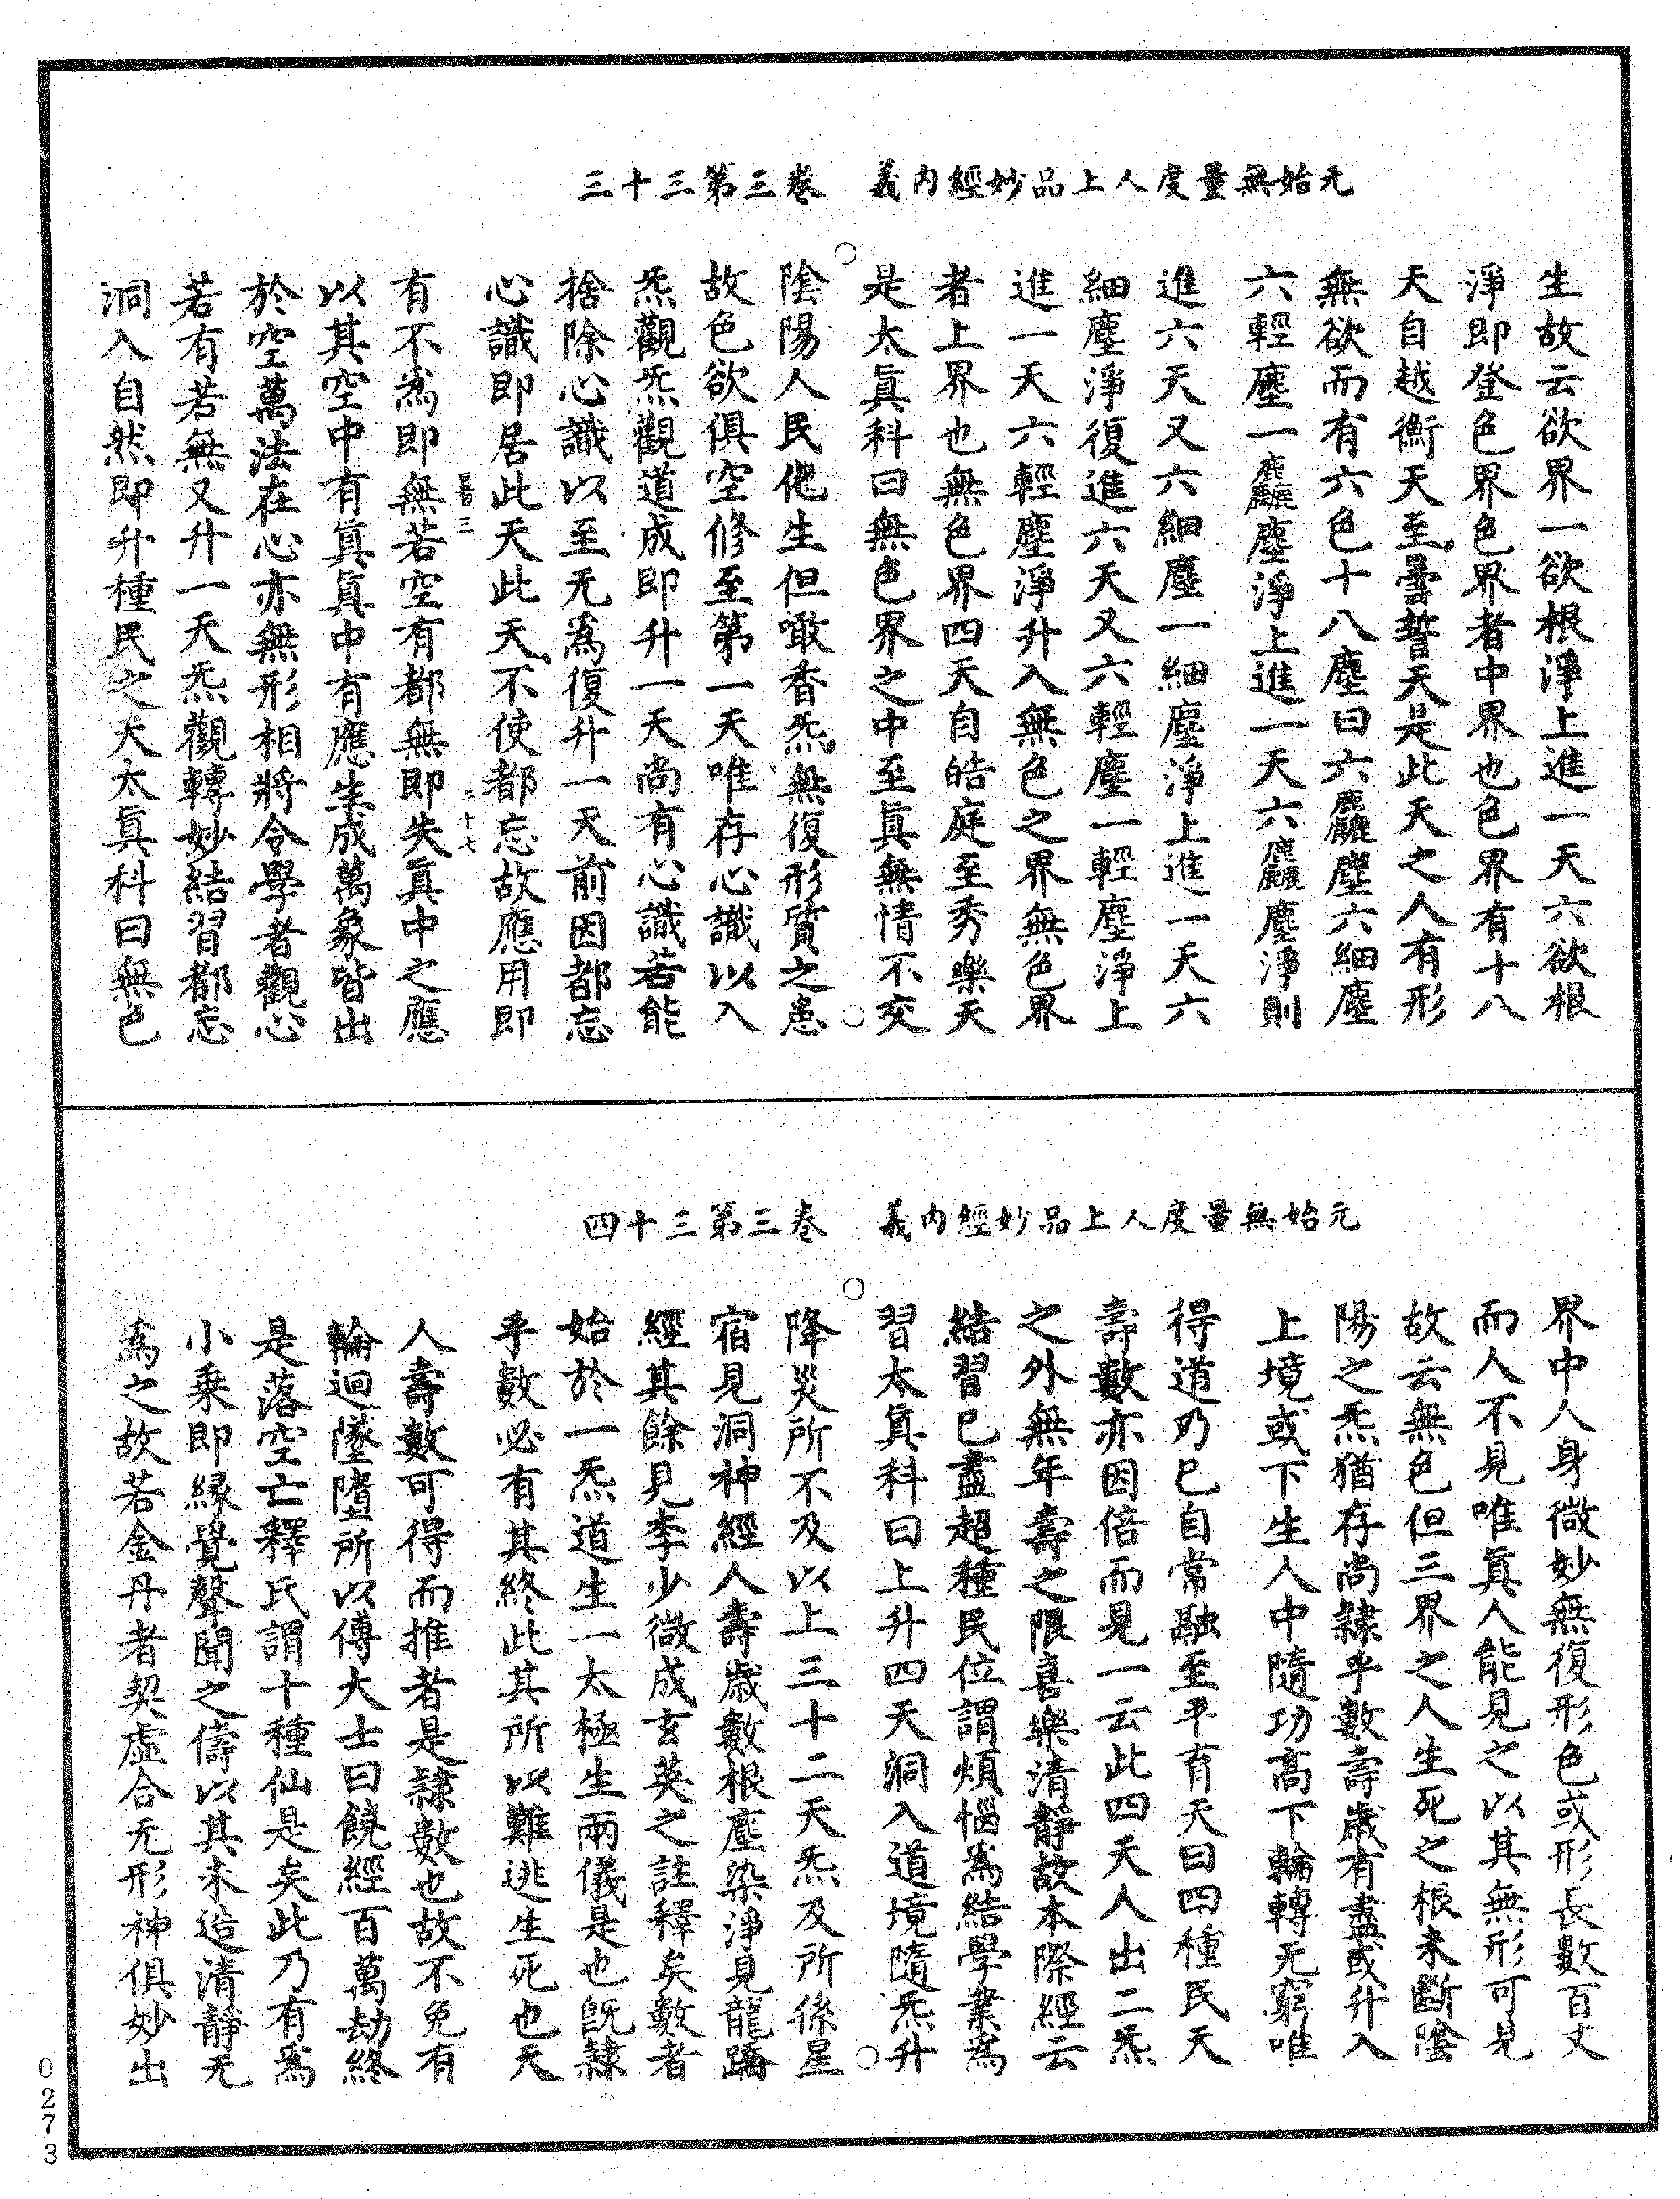 元始無量度人上品妙經內義　卷三第三十三
生故云欲界一欲根淨上進一天六欲根
淨即登色界色界者中界也色界有十八
天自越衡天至曇誓天是此天之人有形
無欲而有六色十八塵曰六麤塵六細塵
六輕塵一麤塵淨上進一天六麤塵淨則
進六天又六細塵一細塵淨上進一天六
細塵淨復進六天又六輕塵一輕塵淨上
進一天六輕塵淨升入無色之界無色界
者上界也無色界四天自皓庭至秀樂天
是太眞科曰無色界之中至眞無情不交
陰陽人民化生但噉香炁無復形質之患
故色欲俱空修至第一天唯存心識以入
炁觀炁觀道成即升一天尚有心識若能
捨除心識以至无爲復升一天前因都忘
心識即居此天此天不使都忘故應用即
有不爲即無若空有都無即失眞中之應
以其空中有眞眞中有應生成萬象皆出
於空萬法在心亦無形相將令學者觀心
若有若無又升一天炁觀轉妙結習都忘
洞入自然即升種民之天太眞科曰無色
元始無量度人上品妙經內義　卷三第三十四
界中人身微妙無復形色或形長數百丈
而人不見唯眞人能見之以其無形可見
故云無色但三界之人生死之根未斷陰
陽之炁猶存尚隷乎數壽歲有盡或升入
上境或下生人中隨功高下輪轉无窮唯
得道乃已自常融至平育天曰四種民天
壽數亦因倍而見一云此四天人出二炁
之外無年壽之限喜樂清靜故本際經云
結習已盡超種民位謂煩惱爲結學業爲
習太眞科曰上升四天洞入道境隨炁升
降災所不及以上三十二天炁及所係星
宿見洞神經人壽歲數根塵染淨見龍蹻
經其餘見李少微成玄英之註釋矣數者
始於一炁道生一太極生兩儀是也旣隷
乎數必有其終此其所以難逃生死也天
人壽數可得而推者是隷數也故不免有
輪迴墜墮所以傅大士曰饒經百萬劫終
是落空亡釋氏謂十種仙是矣此乃有爲
小乘即緣覺聲聞之儔以其未造清靜无
爲之故若金丹者契虛合无形神俱妙出
0273